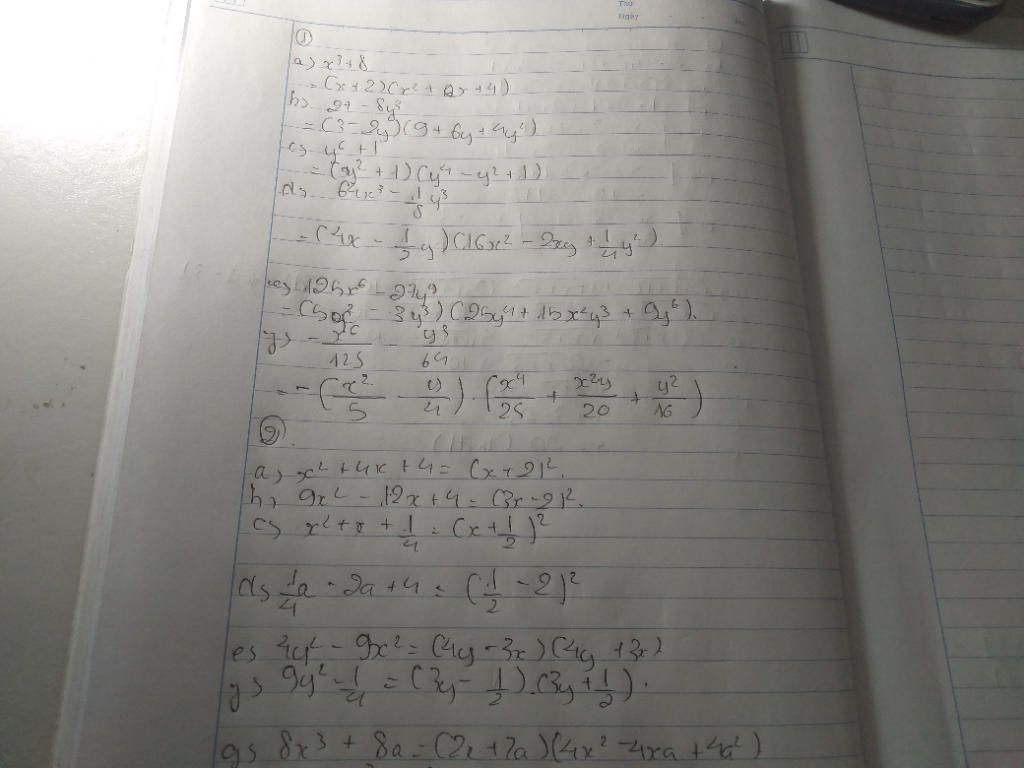 Thứ
Ngày
①
a) x³ + 8
= (x + 2)(x² + 2x + 4)
b) 27 - 8y³
= (3 - 2y)(9 + 6y + 4y²)
c) y⁶ + 1
= (y² + 1)(y⁴ - y² + 1)
d) 64x³ - 1/8 y³
= (4x - 1/2 y)(16x² - 2xy + 1/4 y²)
e) 125x⁶ - 27y⁹
= (5x² - 3y³)(25x⁴ + 15x²y³ + 9y⁶).
y) - x⁶/125 - y³/64
= - (x²/5 - y/4) . (x⁴/25 + x²y/20 + y²/16)
②.
a) x² + 4x + 4 = (x + 2)².
b) 9x² - 12x + 4 = (3x - 2)².
c) x² + x + 1/4 = (x + 1/2)²
d) 1/4 a - 2a + 4 = (1/2 - 2)²
e) 4y² - 9x² = (4y - 3x)(4y + 3x)
y) 9y² - 1/4 = (3y - 1/2).(3y + 1/2).
g) 8x³ + 8a = (2x + 2a)(4x² - 4xa + 4a²)